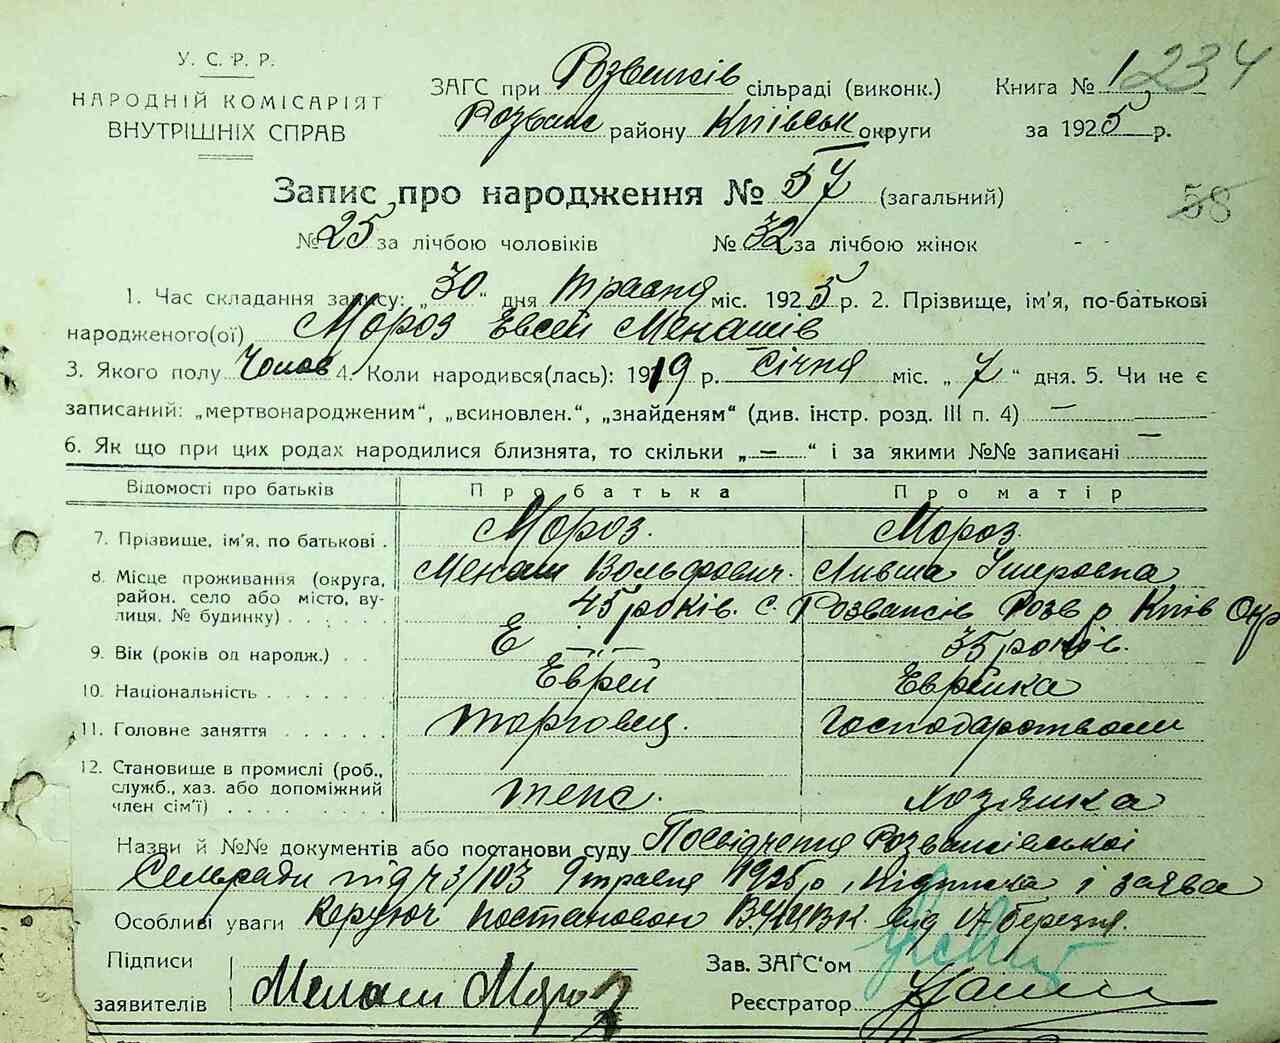 У.С.Р.Р.
НАРОДНІЙ КОМІСАРІЯТ
ВНУТРІШНІХ СПРАВ
ЗАГС при Розважів сільраді (виконк.)
Розваж району Київськ округи
Книга № 1 234
за 1925 р.
Запис про народження № 57 (загальний)
58
№ 25 за лічбою чоловіків № 32 за лічбою жінок
1. Час складання запису: „30“ дня травня міс. 1925 р. 2. Прізвище, ім'я, по-батькові
народженого(ої) Мороз Евсей Менашів
3. Якого полу Чолов 4. Коли народився(лась): 1919 р. Січня міс. „7“ дня. 5. Чи не є
записаний: „мертвонародженим“, „всиновлен.“, „знайденям“ (див. інстр. розд. III п. 4) —
6. Як що при цих родах народилися близнята, то скільки „—“ і за якими №№ записані —
Відомості про батьків Про батька Про матір
7. Прізвище, ім'я, по батькові . Мороз. Мороз.
Менаш Вольфович. Ушеровна
8. Місце проживання (округа,
район, село або місто, ву-
лиця, № будинку) . . . . . . 45 років. с. Розважів Розв р Київ Окр
9. Вік (років од народж.) . . Е 35 років.
10. Національність . . . . . . . Еврей Еврейка
11. Головне заняття . . . . . . торговец. Господарством
12. Становище в промислі (роб.,
служб., хаз. або допоміжний
член сім'ї) . . . . . . . . . тепс. хозяйка
Назви й №№ документів або постанови суду Посвідченя Розважівської
Сельради під ч 3/103 9 травня 1925 р, підписка і заява
Особливі уваги Керуюч постановою ВУЦВК. від 17 березня.
Підписи
заявителів Менаш Мороз
Зав. ЗАГС'ом
Реєстратор